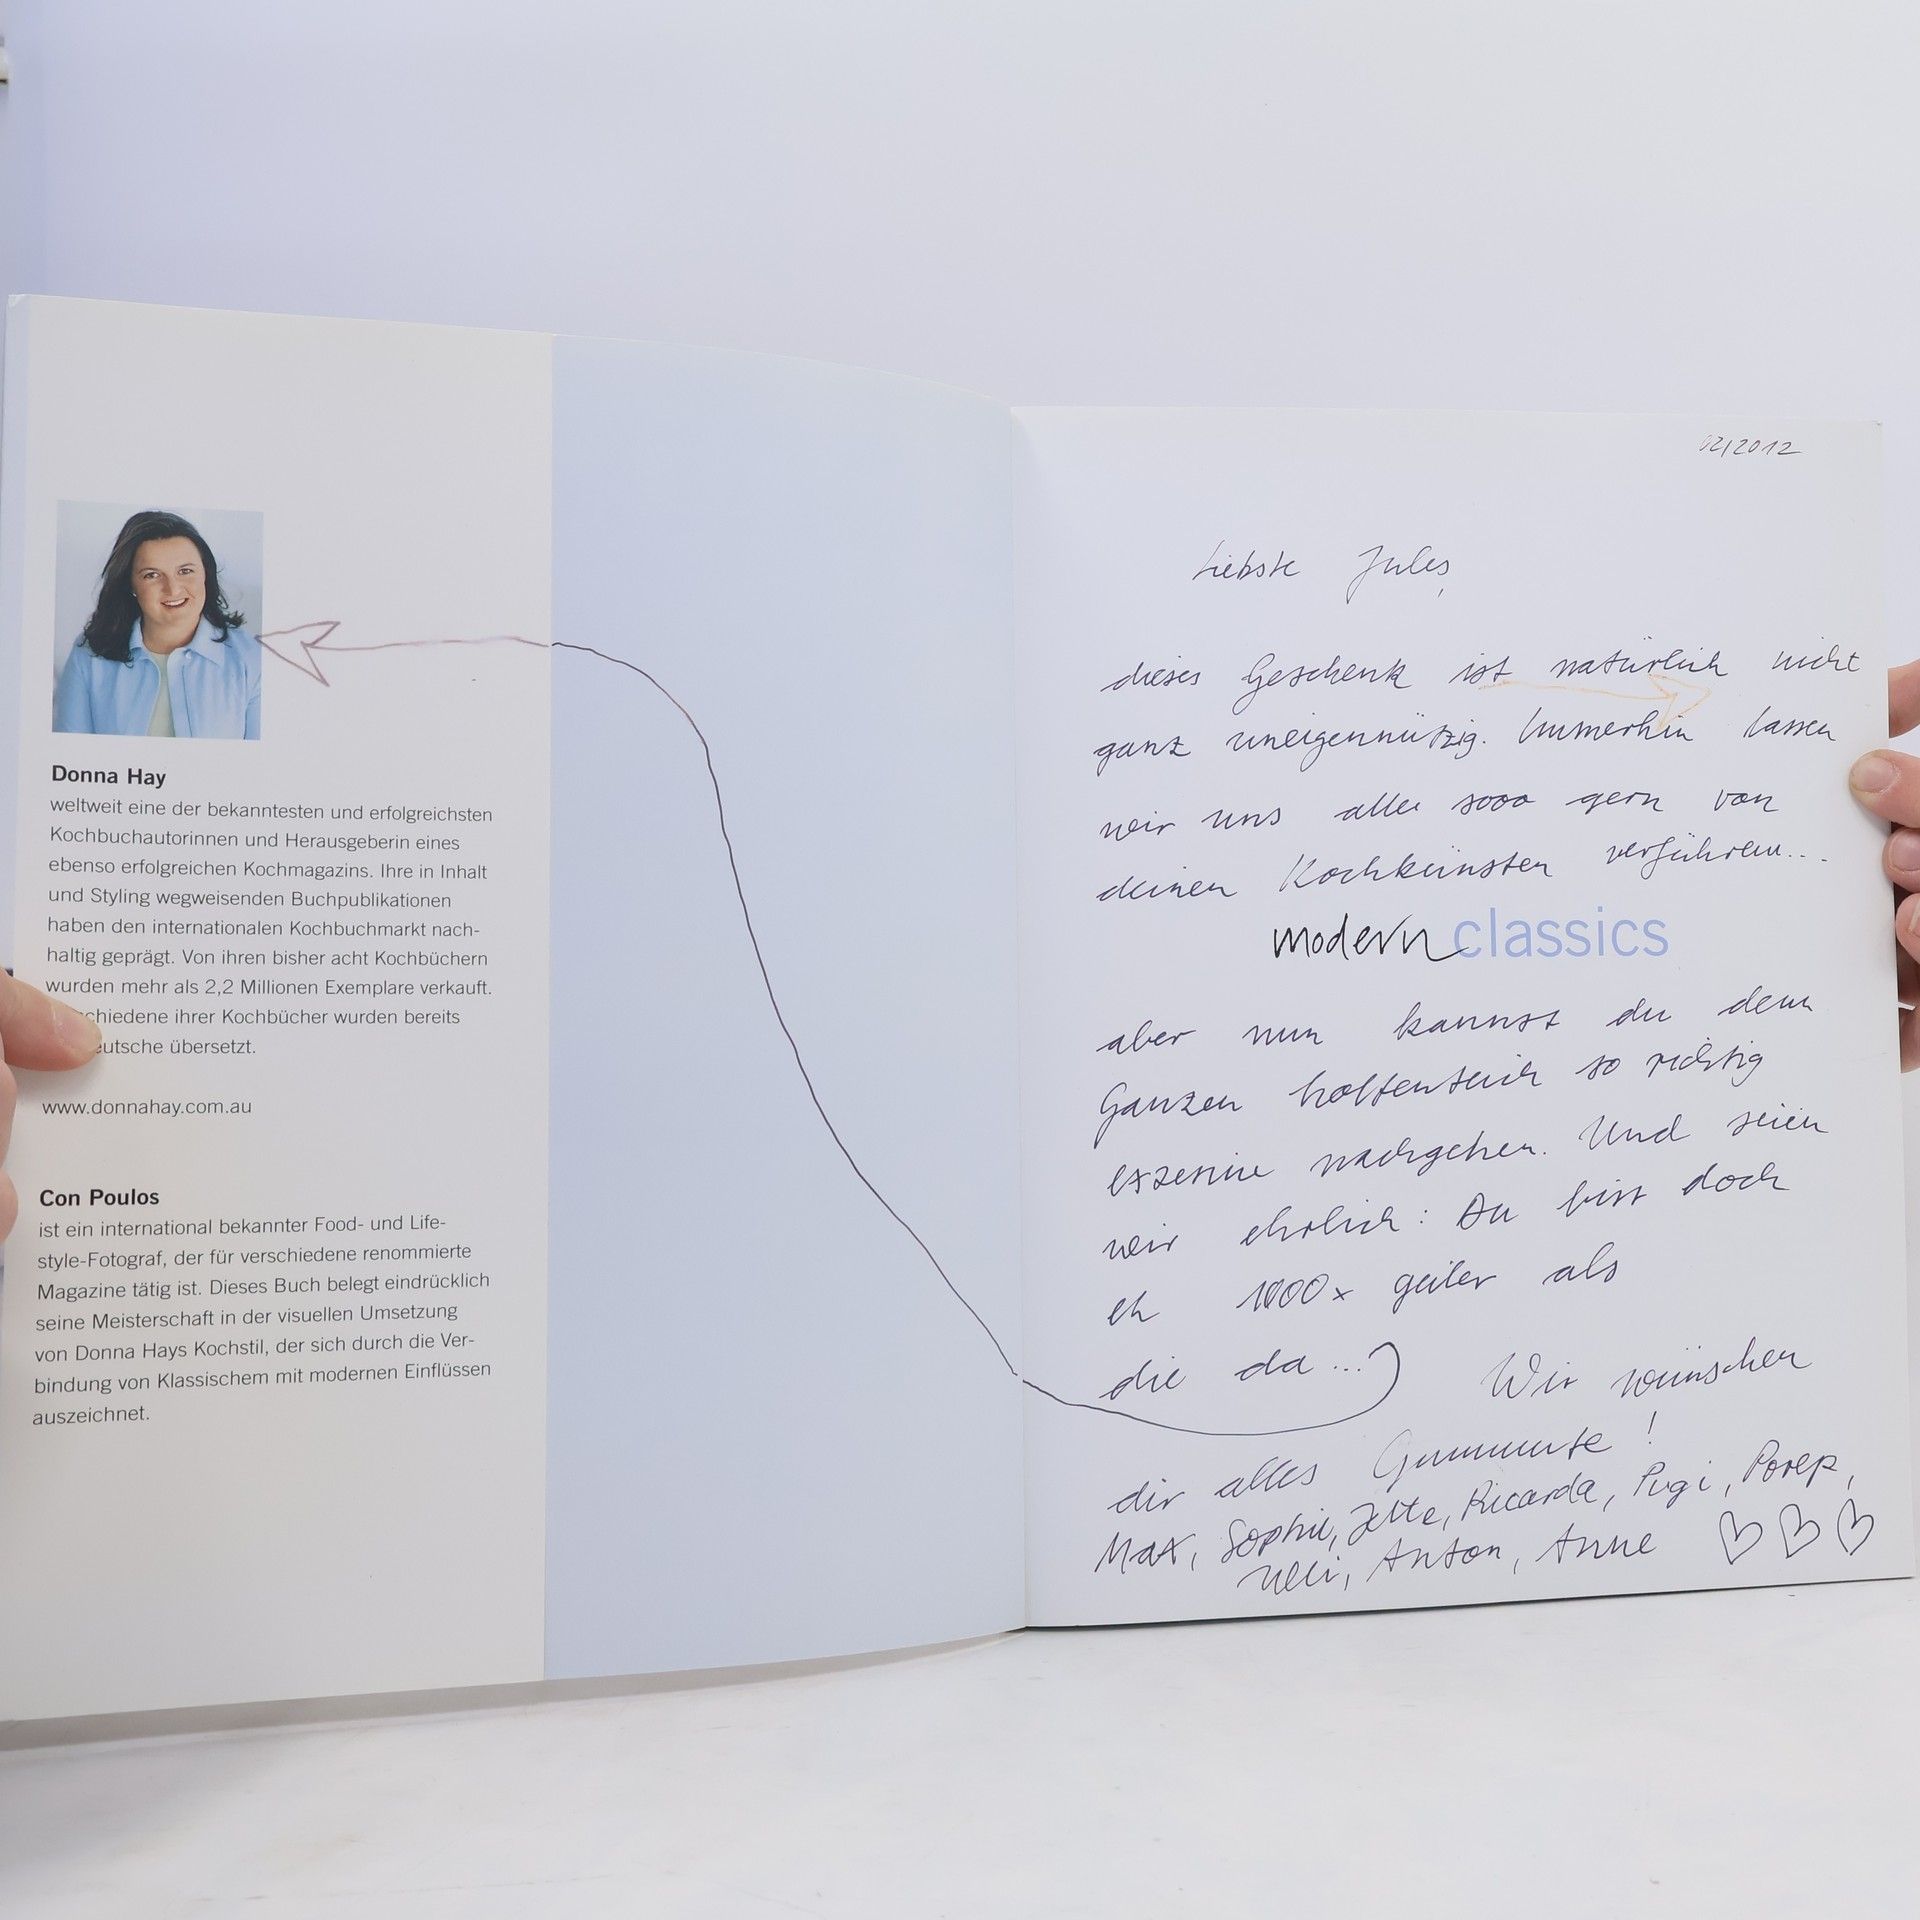 Donna Hay
weltweit eine der bekanntesten und erfolgreichsten
Kochbuchautorinnen und Herausgeberin eines
ebenso erfolgreichen Kochmagazins. Ihre in Inhalt
und Styling wegweisenden Buchpublikationen
haben den internationalen Kochbuchmarkt nach-
haltig geprägt. Von ihren bisher acht Kochbüchern
wurden mehr als 2,2 Millionen Exemplare verkauft.
schiedene ihrer Kochbücher wurden bereits
eutsche übersetzt.
www.donnahay.com.au
Con Poulos
ist ein international bekannter Food- und Life-
style-Fotograf, der für verschiedene renommierte
Magazine tätig ist. Dieses Buch belegt eindrücklich
seine Meisterschaft in der visuellen Umsetzung
von Donna Hays Kochstil, der sich durch die Ver-
bindung von Klassischem mit modernen Einflüssen
auszeichnet.
02/2012
Liebste Jules,
dieses Geschenk ist natürlich nicht
ganz uneigennützig. Immerhin lassen
wir uns alle sooo gern von
deinen Kochkünsten verführen...
modern classics
aber nun kannst du dem
Ganzen hoffentlich so richtig
exzessiv nachgehen. Und seien
wir ehrlich: Du bist doch
eh 1000x geiler als
die da... Wir wünschen
dir alles Guuuuute!
Max, Sophie, Jette, Ricarda, Pugi, Porep,
Anton, Anne ♡♡♡